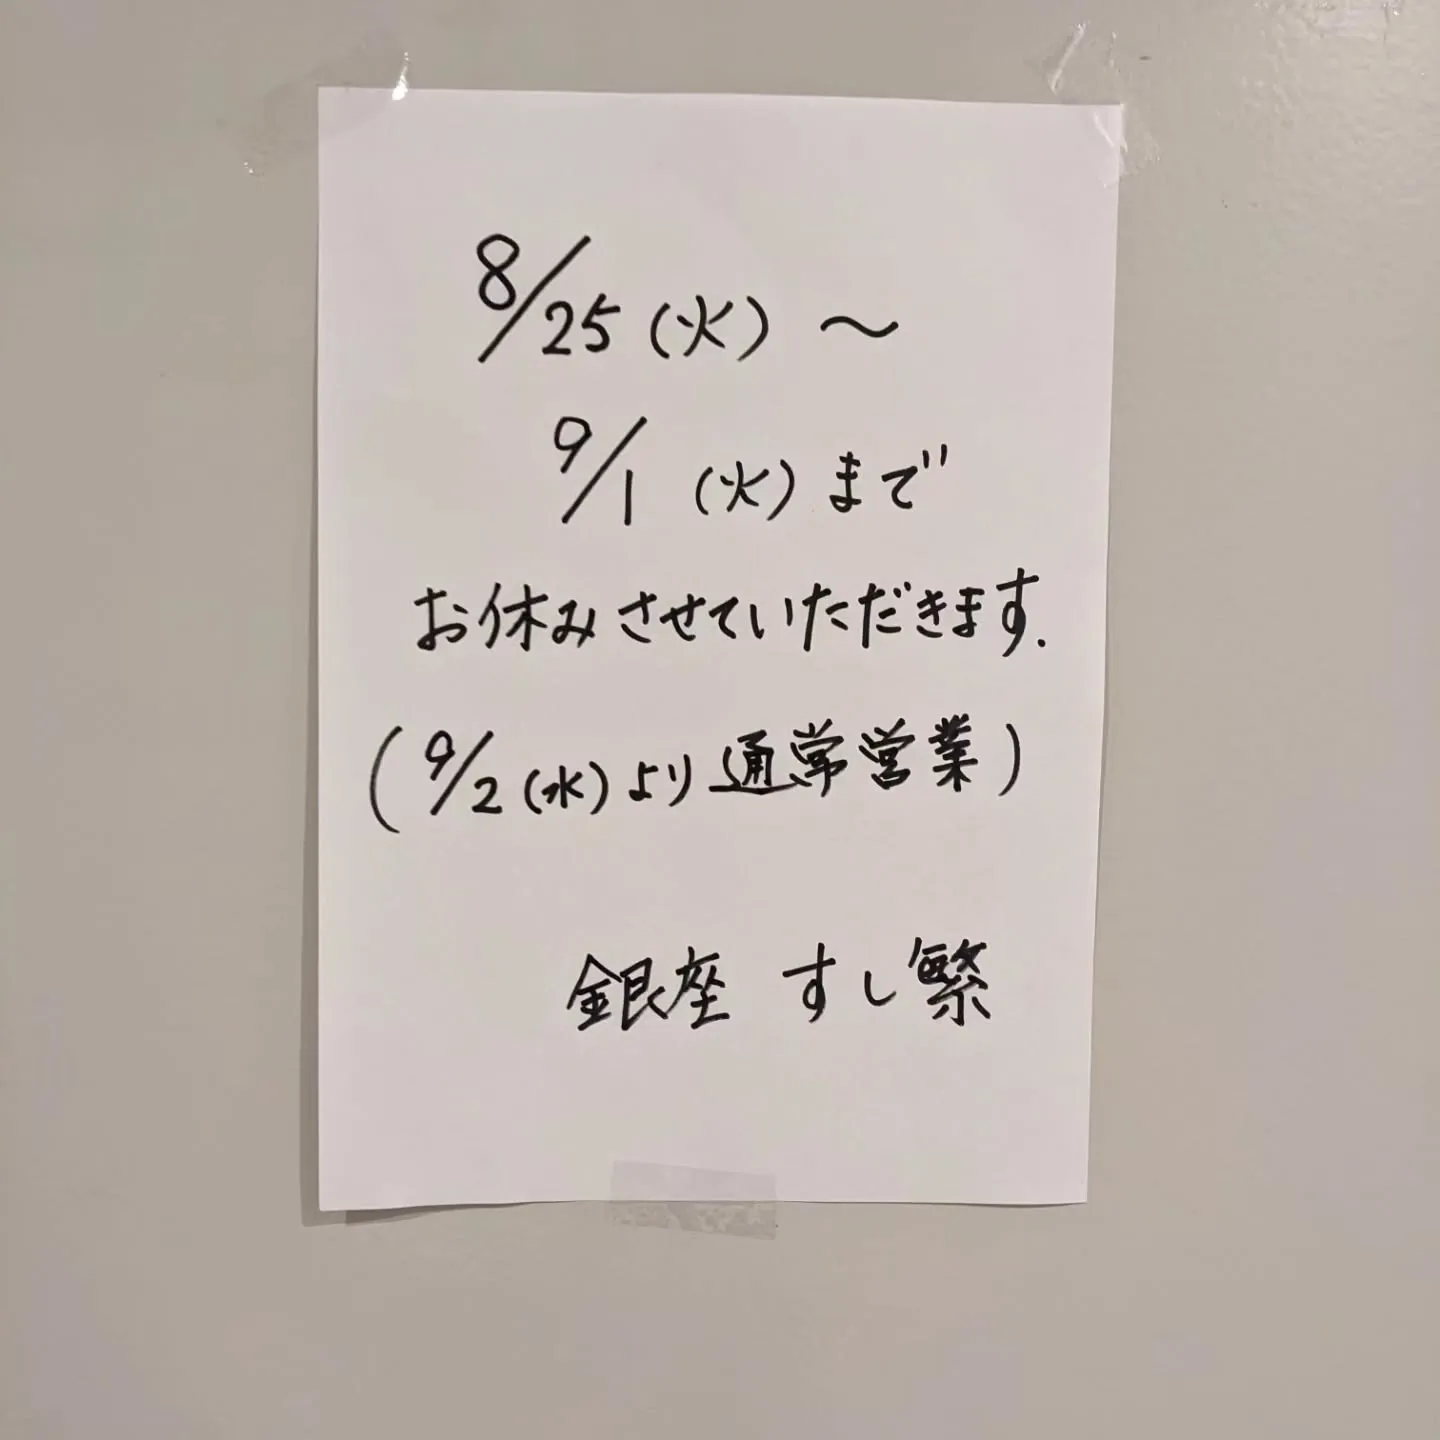 8/25(火)～
9/1(火)まで
お休みさせていただきます.
(9/2(水)より通常営業)
銀座 すし繁